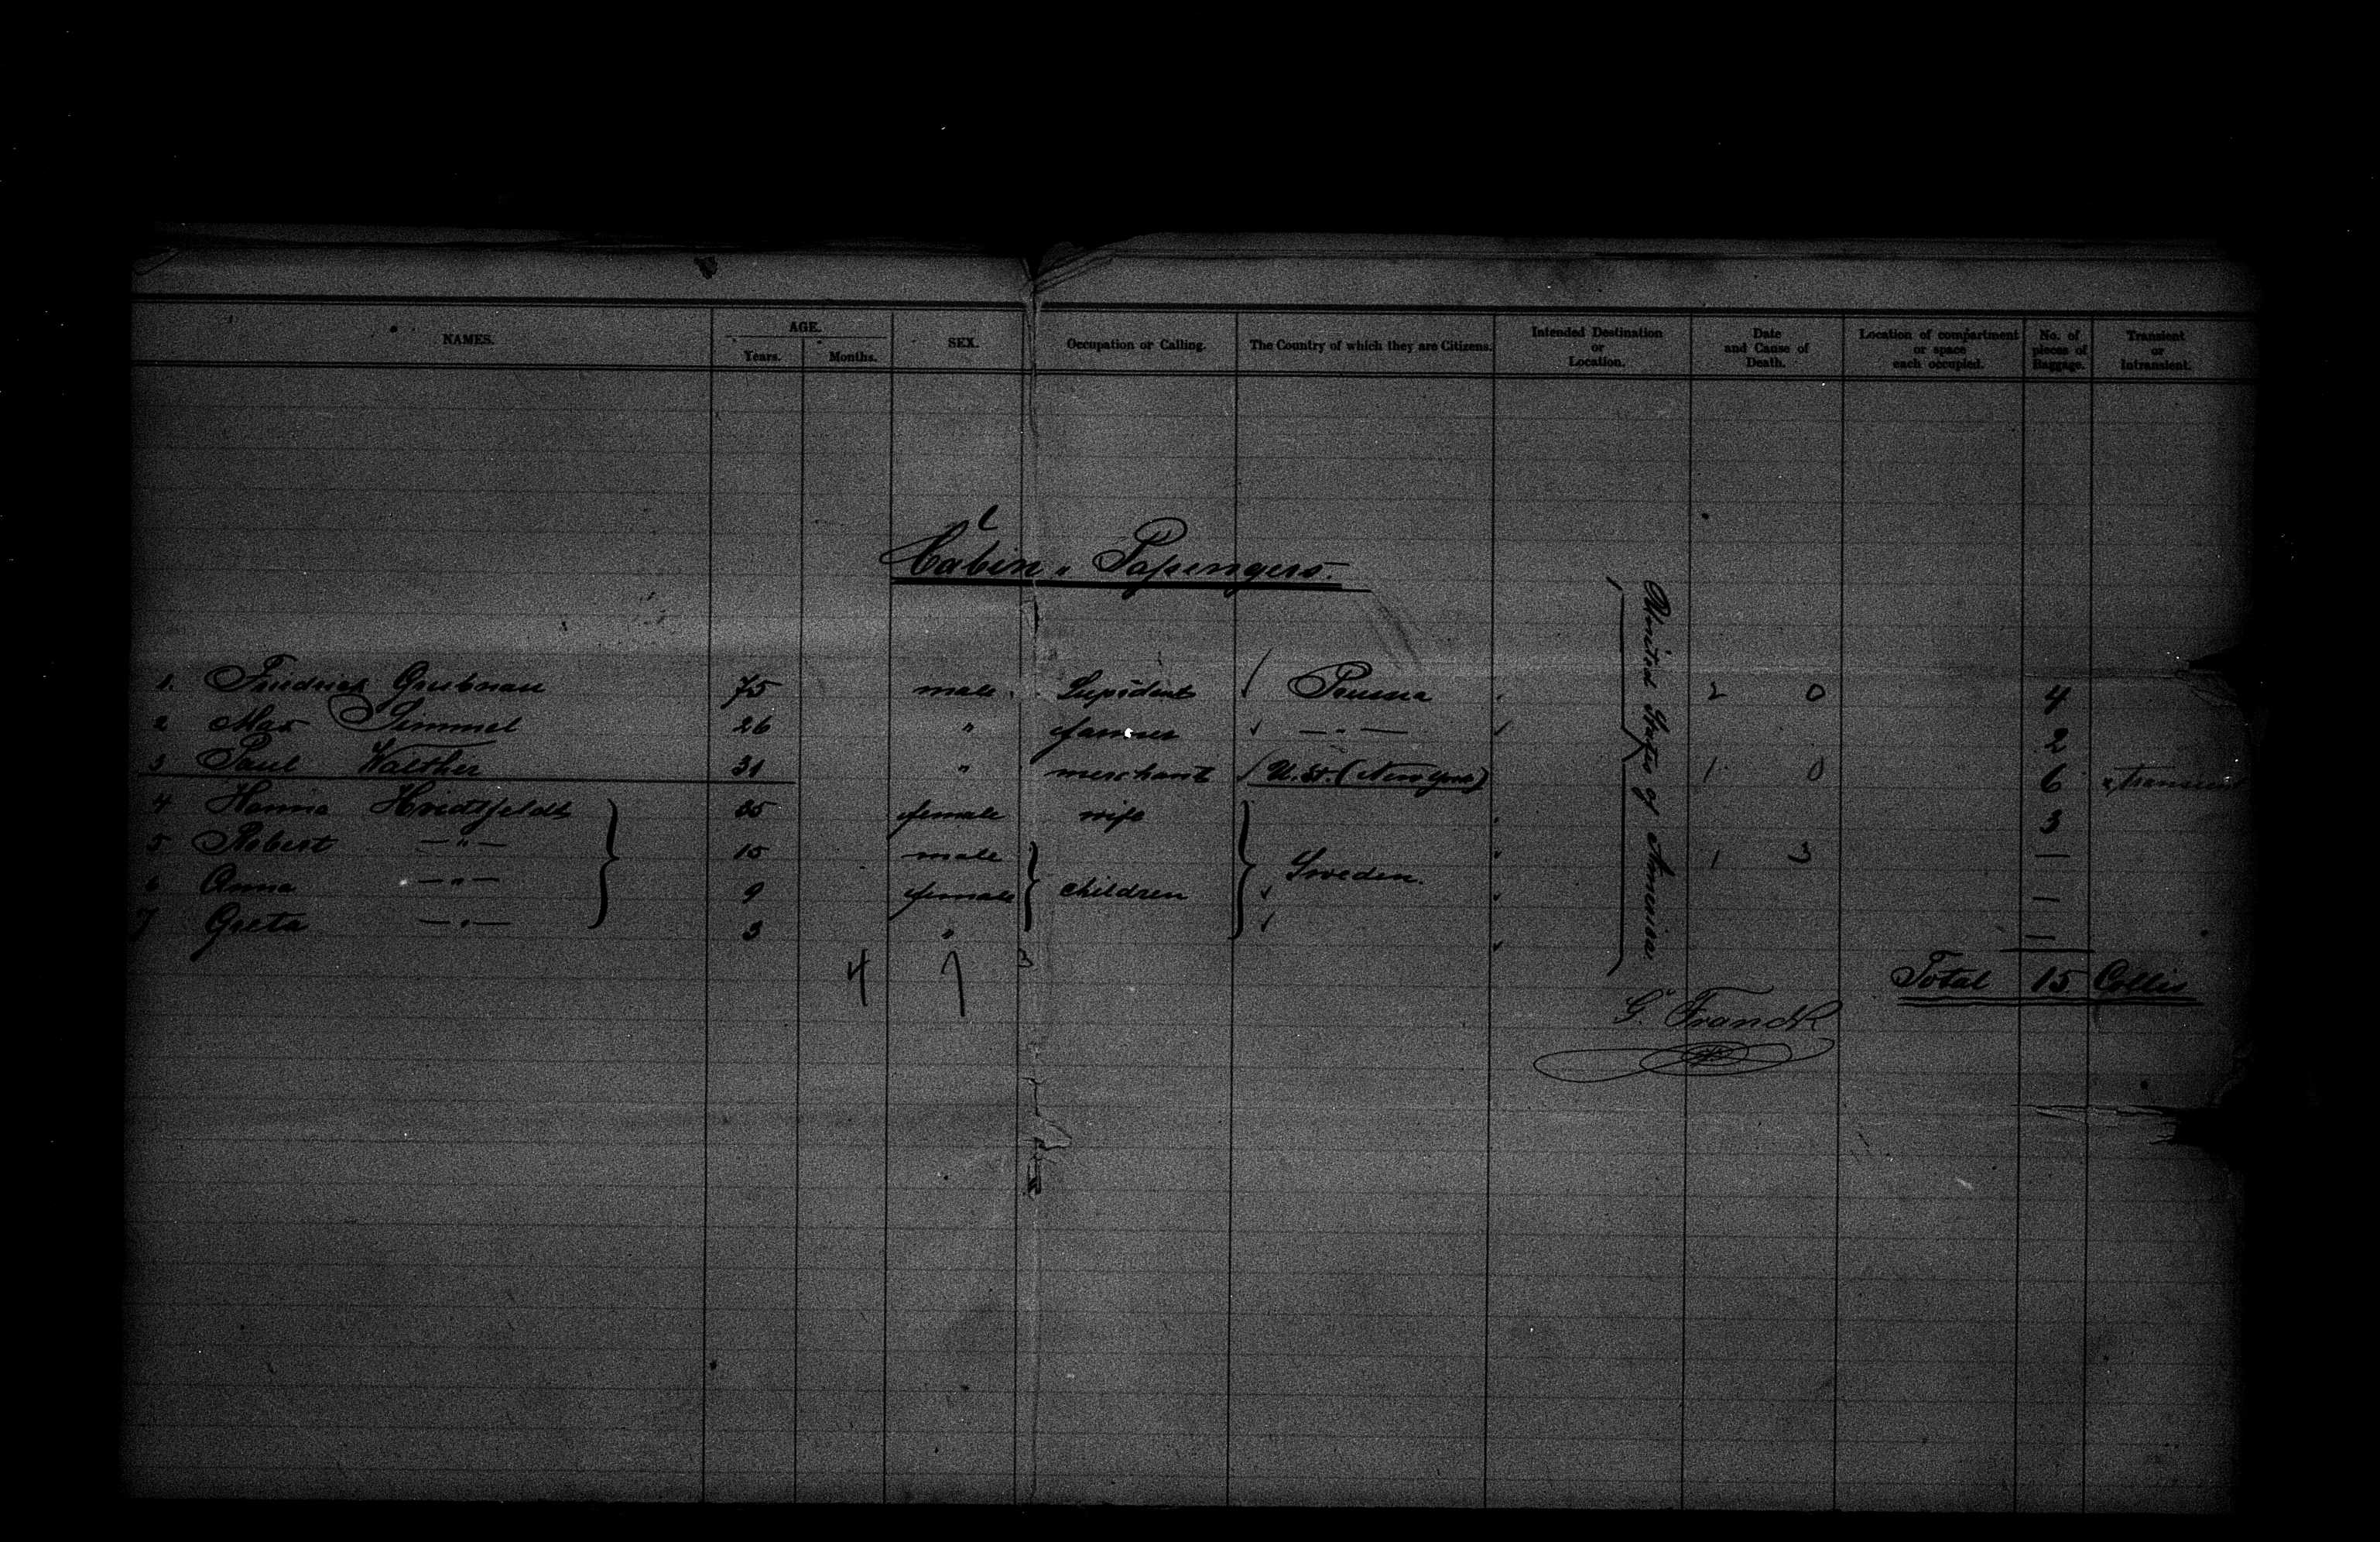 NAMES. AGE. Years. Months. SEX. Occupation or Calling. The Country of which they are Citizens. Intended Destination or Location. Date and Cause of Death. Location of compartment or space each occupied. No. of pieces of Baggage. Transient or Intransient.
Cabin " Passengers.
1. Friedrich 75 male 2 0 4
2 Max Simmel 26 " farmer — " — 2
3 Paul Walther 31 " merchant U. St. (New York) 1 0 6
4 Hanna 35 female wife 3
5 Robert — " — 15 male 1 3 —
6 Anna — " — 9 female children Sweden. —
7 Greta — " — 3 " —
United States of America
4 7 3
Total 15 Collis
G. Franck